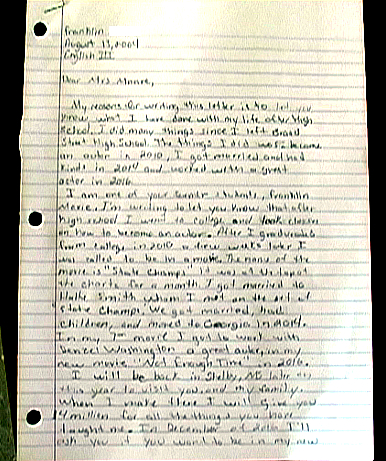 Franklin
August 13, 2004
English III
Dear Mrs. Moore,
My reason for writing this letter is to let you
know what I have done with my life after High
School. I did many things since I left Broad
Street High School. The things I did was become
an actor in 2010, I got married and had
kinds in 2014 and worked with a great
actor in 2016.
I am one of your students, Franklin
I'm writing to let you know that after
high school I went to college and took classes
on how to become an actor. After I graduated
from college in 2010 a few weeks later I
was called to be in a movie. The name of the
movie is "State Champs" it was at the top of
the charts for a month. I got married to
Smith whom I met on the set of
State Champs. We got married, had
children, and moved to Georgia in 2014.
In my movie I got to work with
Denzel Washington a great actor, in my
new movie "Not Enough Time" in 2016.
I will be back in Shelby, MS later on
this year to visit you and my family.
When I make there I will give you
4 million for all the things you have
taught me. In December of 2016 I'll
ask you if you want to be in my new